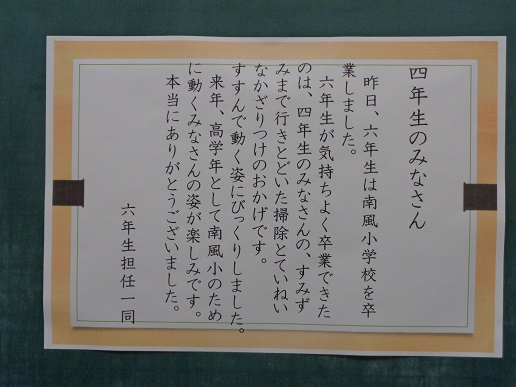 四年生のみなさん
昨日、六年生は南風小学校を卒
業しました。
六年生が気持ちよく卒業できた
のは、四年生のみなさんの、すみず
みまで行きとどいた掃除とていねい
なかざりつけのおかげです。
すすんで動く姿にびっくりしました。
来年、高学年として南風小のため
に動くみなさんの姿が楽しみです。
本当にありがとうございました。
六年生担任一同